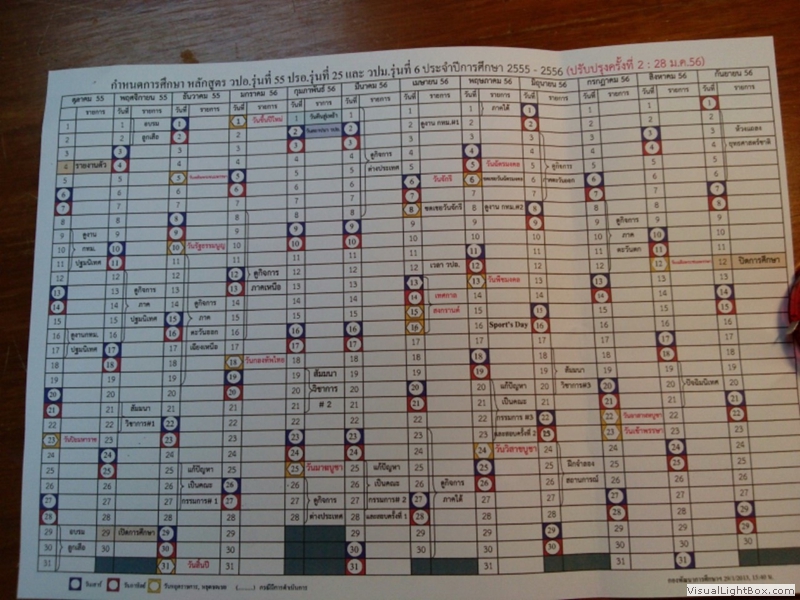 กำหนดการศึกษา หลักสูตร วปอ.รุ่นที่ 55 ปรอ.รุ่นที่ 25 และ วปม.รุ่นที่ 6 ประจำปีการศึกษา 2555 - 2556 (ปรับปรุงครั้งที่ 2 : 28 ม.ค.56)
ตุลาคม 55 พฤศจิกายน 55 ธันวาคม 55 มกราคม 56 กุมภาพันธ์ 56 มีนาคม 56 เมษายน 56 พฤษภาคม 56 มิถุนายน 56 กรกฎาคม 56 สิงหาคม 56 กันยายน 56
วันที่ รายการ วันที่ รายการ วันที่ รายการ วันที่ รายการ วันที่ รายการ วันที่ รายการ วันที่ รายการ วันที่ รายการ วันที่ รายการ วันที่ รายการ วันที่ รายการ วันที่ รายการ
1 1 อบรม 1 1 วันขึ้นปีใหม่ 1 1 1 1 ภาคใต้ 1 1 1 1
2 2 ลูกเสือ 2 2 2 2 2 ดูงาน กทม.#1 2 2 2 2 2
3 3 3 3 3 3 3 3 3 3 3 3 ห้วงแถลง
4 รายงานตัว 4 4 4 4 4 ดูกิจการ 4 4 4 4 4 4 ยุทธศาสตร์ชาติ
5 5 5 5 5 5 ต่างประเทศ 5 5 วันฉัตรมงคล 5 ดูกิจการ 5 5 5
6 6 6 6 6 6 6 วันจักรี 6 6 ภาคตะวันออก 6 6 6
7 7 7 7 7 7 7 7 7 7 7 7
8 8 8 8 8 8 8 ชดเชยวันจักรี 8 ดูงาน กทม.#2 8 8 8 8
9 ดูงาน 9 9 9 9 9 9 9 9 9 ดูกิจการ 9 9
10 กทม. 10 10 วันรัฐธรรมนูญ 10 10 10 10 10 10 10 ภาค 10 10
11 ปฐมนิเทศ 11 11 11 11 11 11 11 11 11 ตะวันตก 11 11
12 12 12 12 ดูกิจการ 12 12 12 เวลา วปอ. 12 12 12 12 12 ปิดการศึกษา
13 13 ดูกิจการ 13 13 ภาคเหนือ 13 13 13 13 วันพืชมงคล 13 13 13 13
14 14 ภาค 14 ดูกิจการ 14 14 14 14 เทศกาล 14 14 14 14 14
15 15 ปฐมนิเทศ 15 ภาค 15 15 15 15 สงกรานต์ 15 15 15 15 15
16 ดูงานกทม. 16 16 ตะวันออก 16 16 16 16 16 Sport's Day 16 16 16 16
17 ปฐมนิเทศ 17 17 เฉียงเหนือ 17 17 17 17 17 17 17 17 17
18 18 18 18 วันกองทัพไทย 18 18 18 18 18 18 18 18
19 19 19 19 19 สัมมนา 19 19 19 19 สัมมนา 19 19 19
20 20 20 20 20 วิชาการ 20 20 20 แก้ปัญหา 20 วิชาการ#3 20 20 ปัจฉิมนิเทศ 20
21 21 สัมมนา 21 21 21 # 2 21 21 21 เป็นคณะ 21 21 21 21
22 22 วิชาการ#1 22 22 22 22 22 22 กรรมการ #3 22 22 วันอาสาฬหบูชา 22 22
23 วันปิยมหาราช 23 23 23 23 23 23 23 และสอบครั้งที่ 2 23 23 วันเข้าพรรษา 23 23
24 24 24 24 24 24 24 24 วันวิสาขบูชา 24 24 24 24
25 25 25 แก้ปัญหา 25 25 วันมาฆบูชา 25 แก้ปัญหา 25 25 25 ฝึกจำลอง 25 25 25
26 26 26 เป็นคณะ 26 26 26 เป็นคณะ 26 ดูกิจการ 26 26 สถานการณ์ 26 26 26
27 27 27 กรรมการ# 1 27 27 ดูกิจการ 27 กรรมการ # 2 27 ภาคใต้ 27 27 27 27 27
28 28 28 28 28 ต่างประเทศ 28 และสอบครั้งที่ 1 28 28 28 28 28 28
29 อบรม 29 เปิดการศึกษา 29 29 29 29 29 29 29 29 29
30 ลูกเสือ 30 30 30 30 30 30 30 30 30 30
31 31 วันสิ้นปี 31 31 31 31 31
วันเสาร์ วันอาทิตย์ วันหยุดราชการ, หยุดชดเชย (........) กรณีมีการดำเนินการ
กองพัฒนาการศึกษาฯ 29/1/2013, 13:40 น.
VisualLightBox.com